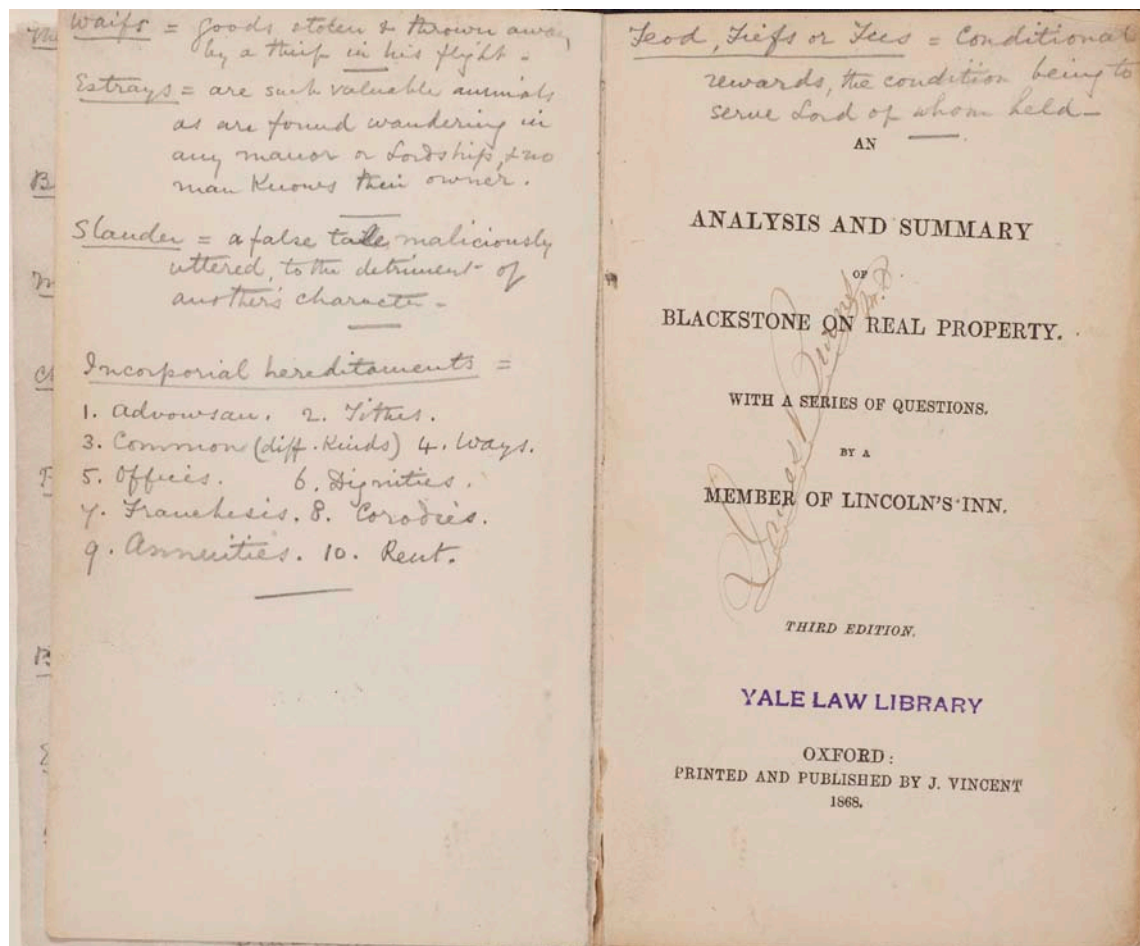 Waifs = goods stolen & thrown away
by a thief in his flight -
Estrays = are such valuable animals
as are found wandering in
any manor or Lordship, & no
man Knows their owner.
Slander = a false tale, maliciously
uttered, to the detriment of
another's character -
Incorporial hereditaments =
1. Advowsan. 2. Tithes.
3. Common (diff. Kinds) 4. Ways.
5. Offices. 6. Dignities.
7. Franchesis. 8. Corodies.
9. Annuities. 10. Rent.
Feod, Fiefs or Fees = Conditional
rewards, the condition being to
serve Lord of whom held -
AN
ANALYSIS AND SUMMARY
OF
BLACKSTONE ON REAL PROPERTY.
WITH A SERIES OF QUESTIONS.
BY A
MEMBER OF LINCOLN'S INN.
THIRD EDITION.
YALE LAW LIBRARY
OXFORD:
PRINTED AND PUBLISHED BY J. VINCENT
1868.